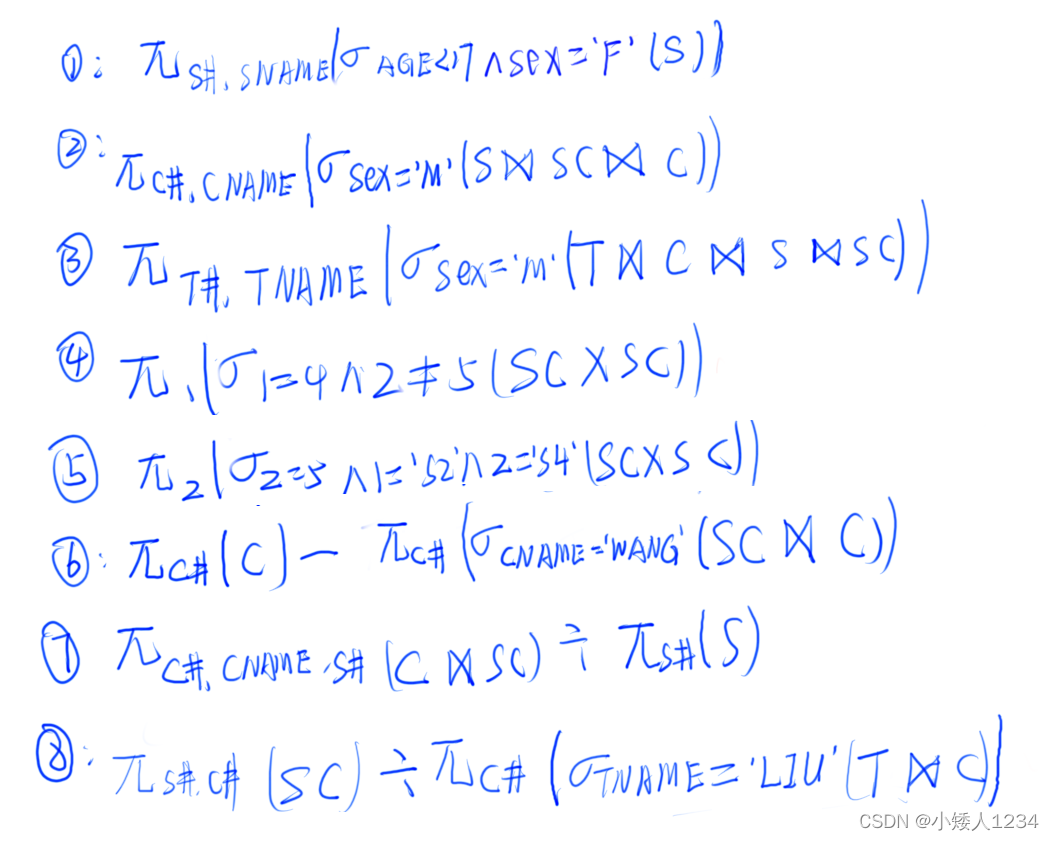 ①: π S#, SNAME(σ AGE<17 ∧ sex='F' (S))
②: π C#, CNAME(σ sex='M' (S ⋈ SC ⋈ C))
③ π T#, TNAME(σ sex='M' (T ⋈ C ⋈ S ⋈ SC))
④ π 1(σ 1=4 ∧ 2≠5 (SC X SC))
⑤ π 2(σ 2=5 ∧ 1='S2' ∧ 2='S4' (SC X SC))
⑥: π C#(C) — π C#(σ CNAME='WANG' (SC ⋈ C))
⑦ π C#, CNAME, S# (C ⋈ SC) ÷ π S#(S)
⑧: π S#, C# (SC) ÷ π C# (σ TNAME='LIU' (T ⋈ C))
CSDN @小矮人1234